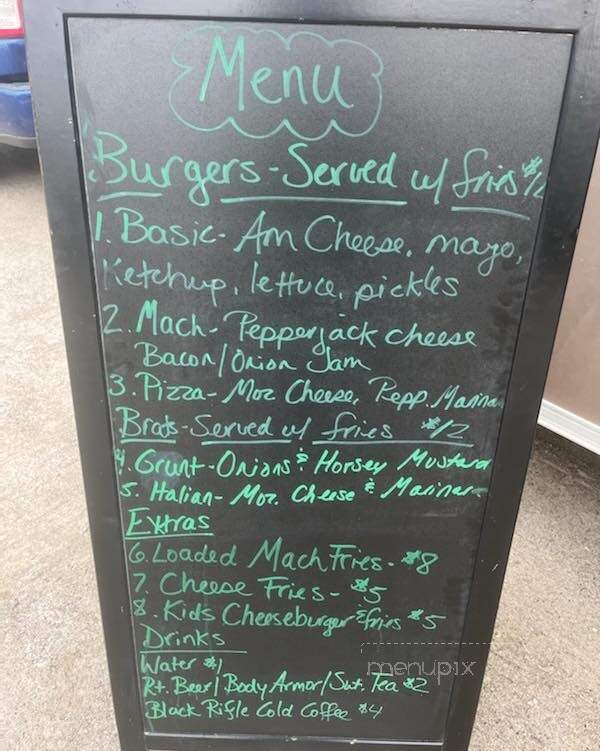 Menu
Burgers-Served w/ fries $12
1. Basic- Am Cheese, mayo,
Ketchup, lettuce, pickles
2. Mach- Pepperjack cheese
Bacon/Onion Jam
3. Pizza- Moz Cheese, Pepp. Marina
Brats-Served w/ fries $12
4. Grunt-Onions & Horsey Mustard
5. Italian- Moz. Cheese & Marinara
Extras
6. Loaded Mach Fries- $8
7. Cheese Fries- $5
8. Kids Cheeseburger & fries $5
Drinks
Water $1
Rt. Beer/ Body Armor/ Swt. Tea $2
Black Rifle Cold Coffee $4
menupix